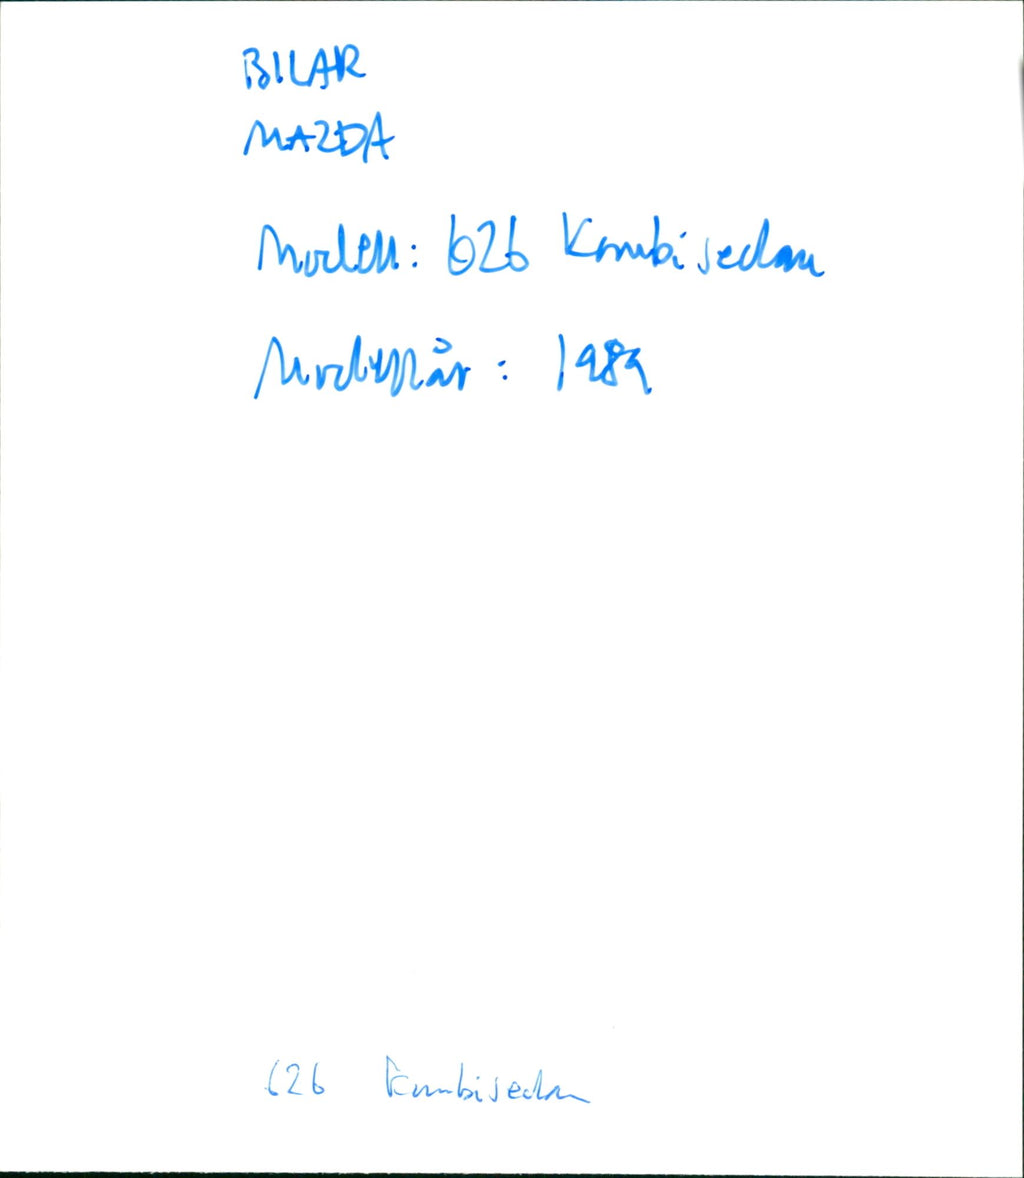 BILAR
MAZDA
Modell: 626 Kombisedan
Modellår: 1989
626 Kombisedan